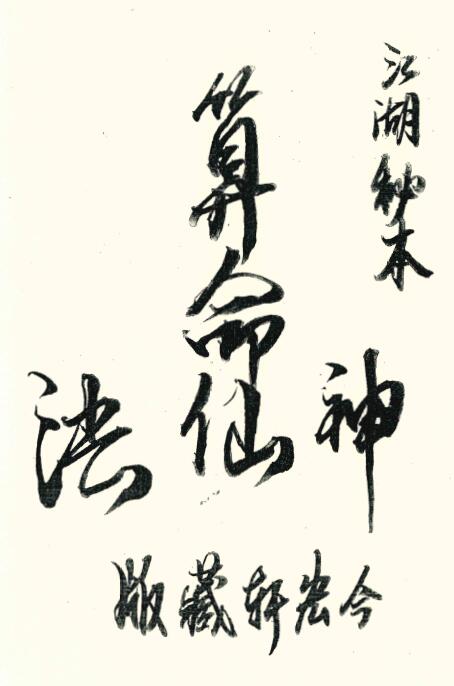 江湖秘本
算命
神仙法
今軒藏版